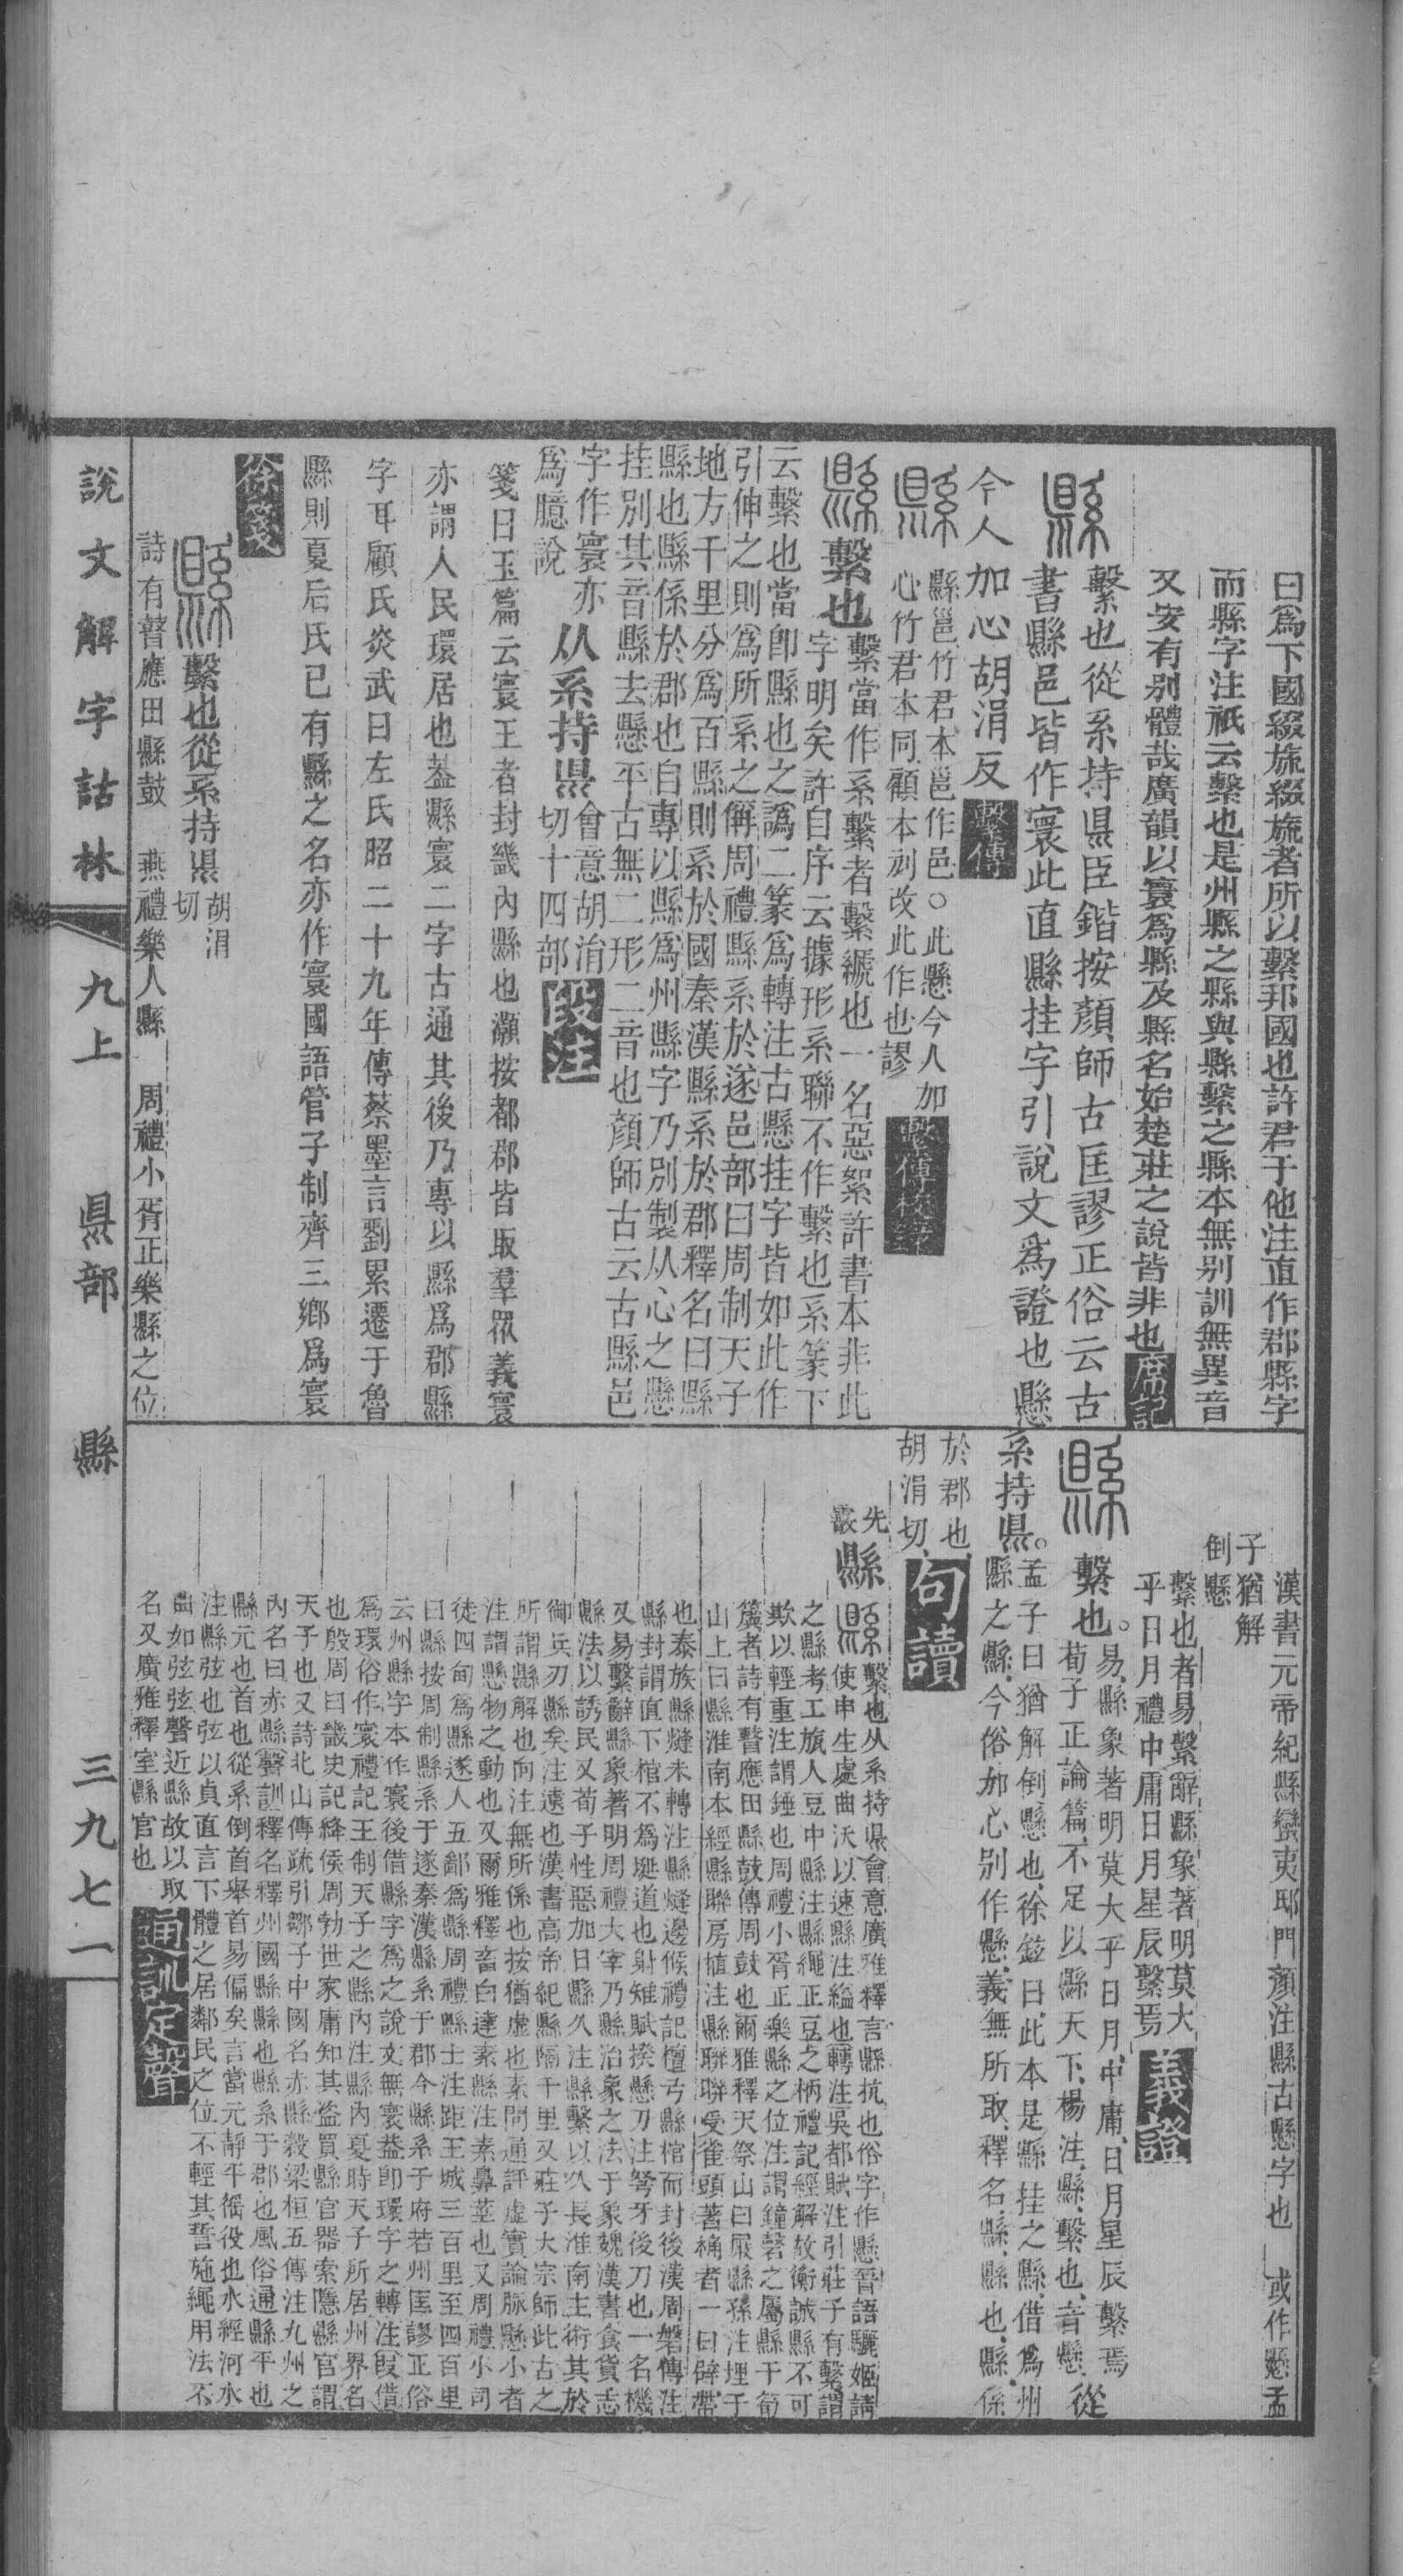 曰爲下國綴旒綴旒者所以繫邦國也許君于他注直作郡縣字
而縣字注祇云繫也是州縣之縣與縣繫之縣本無别訓無異音
又安有别體哉廣韻以寰爲縣及縣名始楚莊之說皆非也席記
縣繫也從系持㬎臣鍇按顏師古匡謬正俗云古
書縣邑皆作寰此直縣挂字引說文爲證也懸
今人加心胡涓反繫傳
縣縣邕竹君本邕作邑○此懸今人加
心竹君本同顧本刓改此作也謬繫傳校錄
縣繫也繫當作系繫者繫縭也一名惡絮許書本非此
字明矣許自序云據形系聯不作繫也系篆下
云繫也當卽縣也之譌二篆爲轉注古懸挂字皆如此作
引伸之則爲所系之偁周禮縣系於遂邑部曰周制天子
地方千里分爲百縣則系於國秦漢縣系於郡釋名曰縣
縣也縣係於郡也自專以縣爲州縣字乃別製从心之懸
挂別其音縣去懸平古無二形二音也顏師古云古縣邑
字作寰亦
爲臆說从系持㬎會意胡涓
切十四部段注
箋曰玉篇云寰王者封畿內縣也灝按都郡皆取羣眾義寰
亦謂人民環居也蓋縣寰二字古通其後乃專以縣爲郡縣
字耳顧氏炎武曰左氏昭二十九年傳蔡墨言劉累遷于魯
縣則夏后氏已有縣之名亦作寰國語管子制齊三鄉爲寰
徐箋
縣繫也從系持㬎胡涓
切
詩有瞽應田縣鼓　燕禮樂人縣　周禮小胥正樂縣之位
漢書元帝紀縣蠻夷邸門顏注縣古懸字也　或作懸孟
子猶解
倒懸
繫也者易繫辭縣象著明莫大
乎日月禮中庸日月星辰繫焉義證
縣繫也。易縣象著明莫大乎日月中庸日月星辰繫焉
荀子正論篇不足以縣天下楊注縣繫也音懸從
系持㬎。孟子曰猶解倒懸也徐鉉曰此本是縣挂之縣借爲州
縣之縣今俗加心别作懸義無所取釋名縣縣也縣係
於郡也
胡涓切句讀
先韻縣縣繫也从系持㬎會意廣雅釋言縣抗也俗字作懸晉語驪姬請
使申生處曲沃以速縣注縊也轉注吳都賦注引莊子有繫謂
之縣考工旊人豆中縣注縣繩正豆之柄禮記經解故衡誠縣不可
欺以輕重注謂錘也周禮小胥正樂縣之位注謂鐘磬之屬縣于筍
簴者詩有瞽應田縣鼓傳周鼓也爾雅釋天祭山曰庪縣孫注埋于
山上曰縣淮南本經縣聯房植注縣聯聯受雀頭著桷者一曰辟帶
也泰族縣㷭未轉注縣㷭邊候禮記檀弓縣棺而封後漢周磐傳注
縣封謂直下棺不爲埏道也射雉賦揆懸刀注弩牙後刀也一名機
又易繫辭縣象著明周禮大宰乃縣治象之法于象魏漢書食貨志
縣法以誘民又荀子性惡加日縣久注縣繫以久長淮南主術其於
御兵刃縣矣注遠也漢書高帝紀縣隔千里又莊子大宗師此古之
所謂縣解也向注無所係也按猶虛也素問通評虛實論脈懸小者
注謂懸物之動也又爾雅釋畜白達素縣注素鼻莖也又周禮小司
徒四甸爲縣遂人五鄙爲縣周禮縣士注距王城三百里至四百里
曰縣按周制縣系于遂秦漢縣系于郡今縣系于府若州匡謬正俗
云州縣字本作寰後借縣字爲之說文無寰蓋卽環字之轉注叚借
爲環俗作寰禮記王制天子之縣內注縣內夏時天子所居州界名
也殷周曰畿史記絳侯周勃世家庸知其盜買縣官器索隱縣官謂
天子也又詩北山傳疏引鄒子中國名赤縣榖梁桓五傳注九州之
內名曰赤縣聲訓釋名釋州國縣縣也縣系于郡也風俗通縣平也
縣元也首也從系倒首舉首易偏矣言當元靜平徭役也水經河水
注縣弦也弦以貞直言下體之居鄰民之位不輕其誓施繩用法不
曲如弦弦聲近縣故以取
名又廣雅釋室縣官也通訓定聲
說文解字詁林　九上　㬎部　縣　三九七一